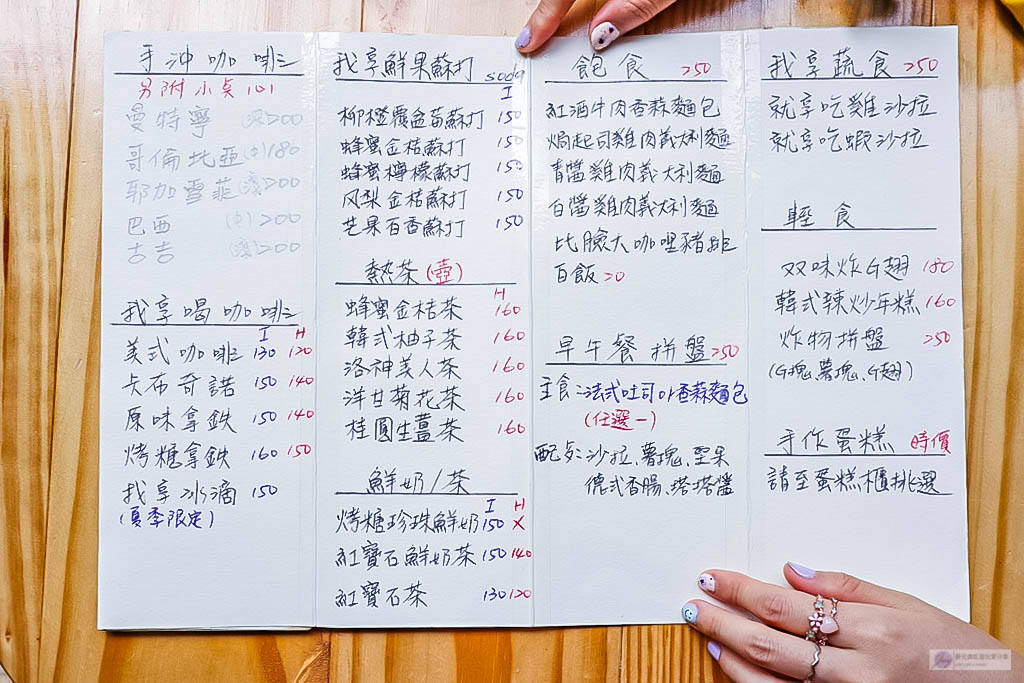 手沖咖啡
另附小点 101
曼特寧 200
哥倫比亞 (中) 180
耶加雪菲 (淺) 200
巴西 (中) 200
古吉 (淺) 200
我享喝咖啡
I H
美式咖啡 130 120
卡布奇諾 150 140
原味拿鉄 150 140
烤糖拿鉄 160 150
我享冰滴 150
(夏季限定)
我享鮮果蘇打 soda
I
柳橙覆盆苺蘇打 150
蜂蜜金桔蘇打 150
蜂蜜檸檬蘇打 150
凤梨金桔蘇打 150
芒果百香蘇打 150
熱茶(壺)
H
蜂蜜金桔茶 160
韓式柚子茶 160
洛神美人茶 160
洋甘菊花茶 160
桂圓生薑茶 160
鮮奶/茶
I H
烤糖珍珠鮮奶 150 X
紅寶石鮮奶茶 150 140
紅寶石茶 130 120
飽食 250
紅酒牛肉香蒜麵包
焗起司雞肉義大利麵
青醬雞肉義大利麵
白醬雞肉義大利麵
比臉大咖哩豬排
白飯 20
早午餐拼盤 250
主食:法式吐司or香蒜麵包
(任選一)
配炙:沙拉、薯塊、堅果
德式香腸、塔塔醬
我享蔬食 250
就享吃雞沙拉
就享吃蝦沙拉
輕食
双味炸G翅 180
韓式辣炒年糕 160
炸物拼盤 250
(G塊、薯塊、G翅)
手作蛋糕 時價
請至蛋糕櫃挑選